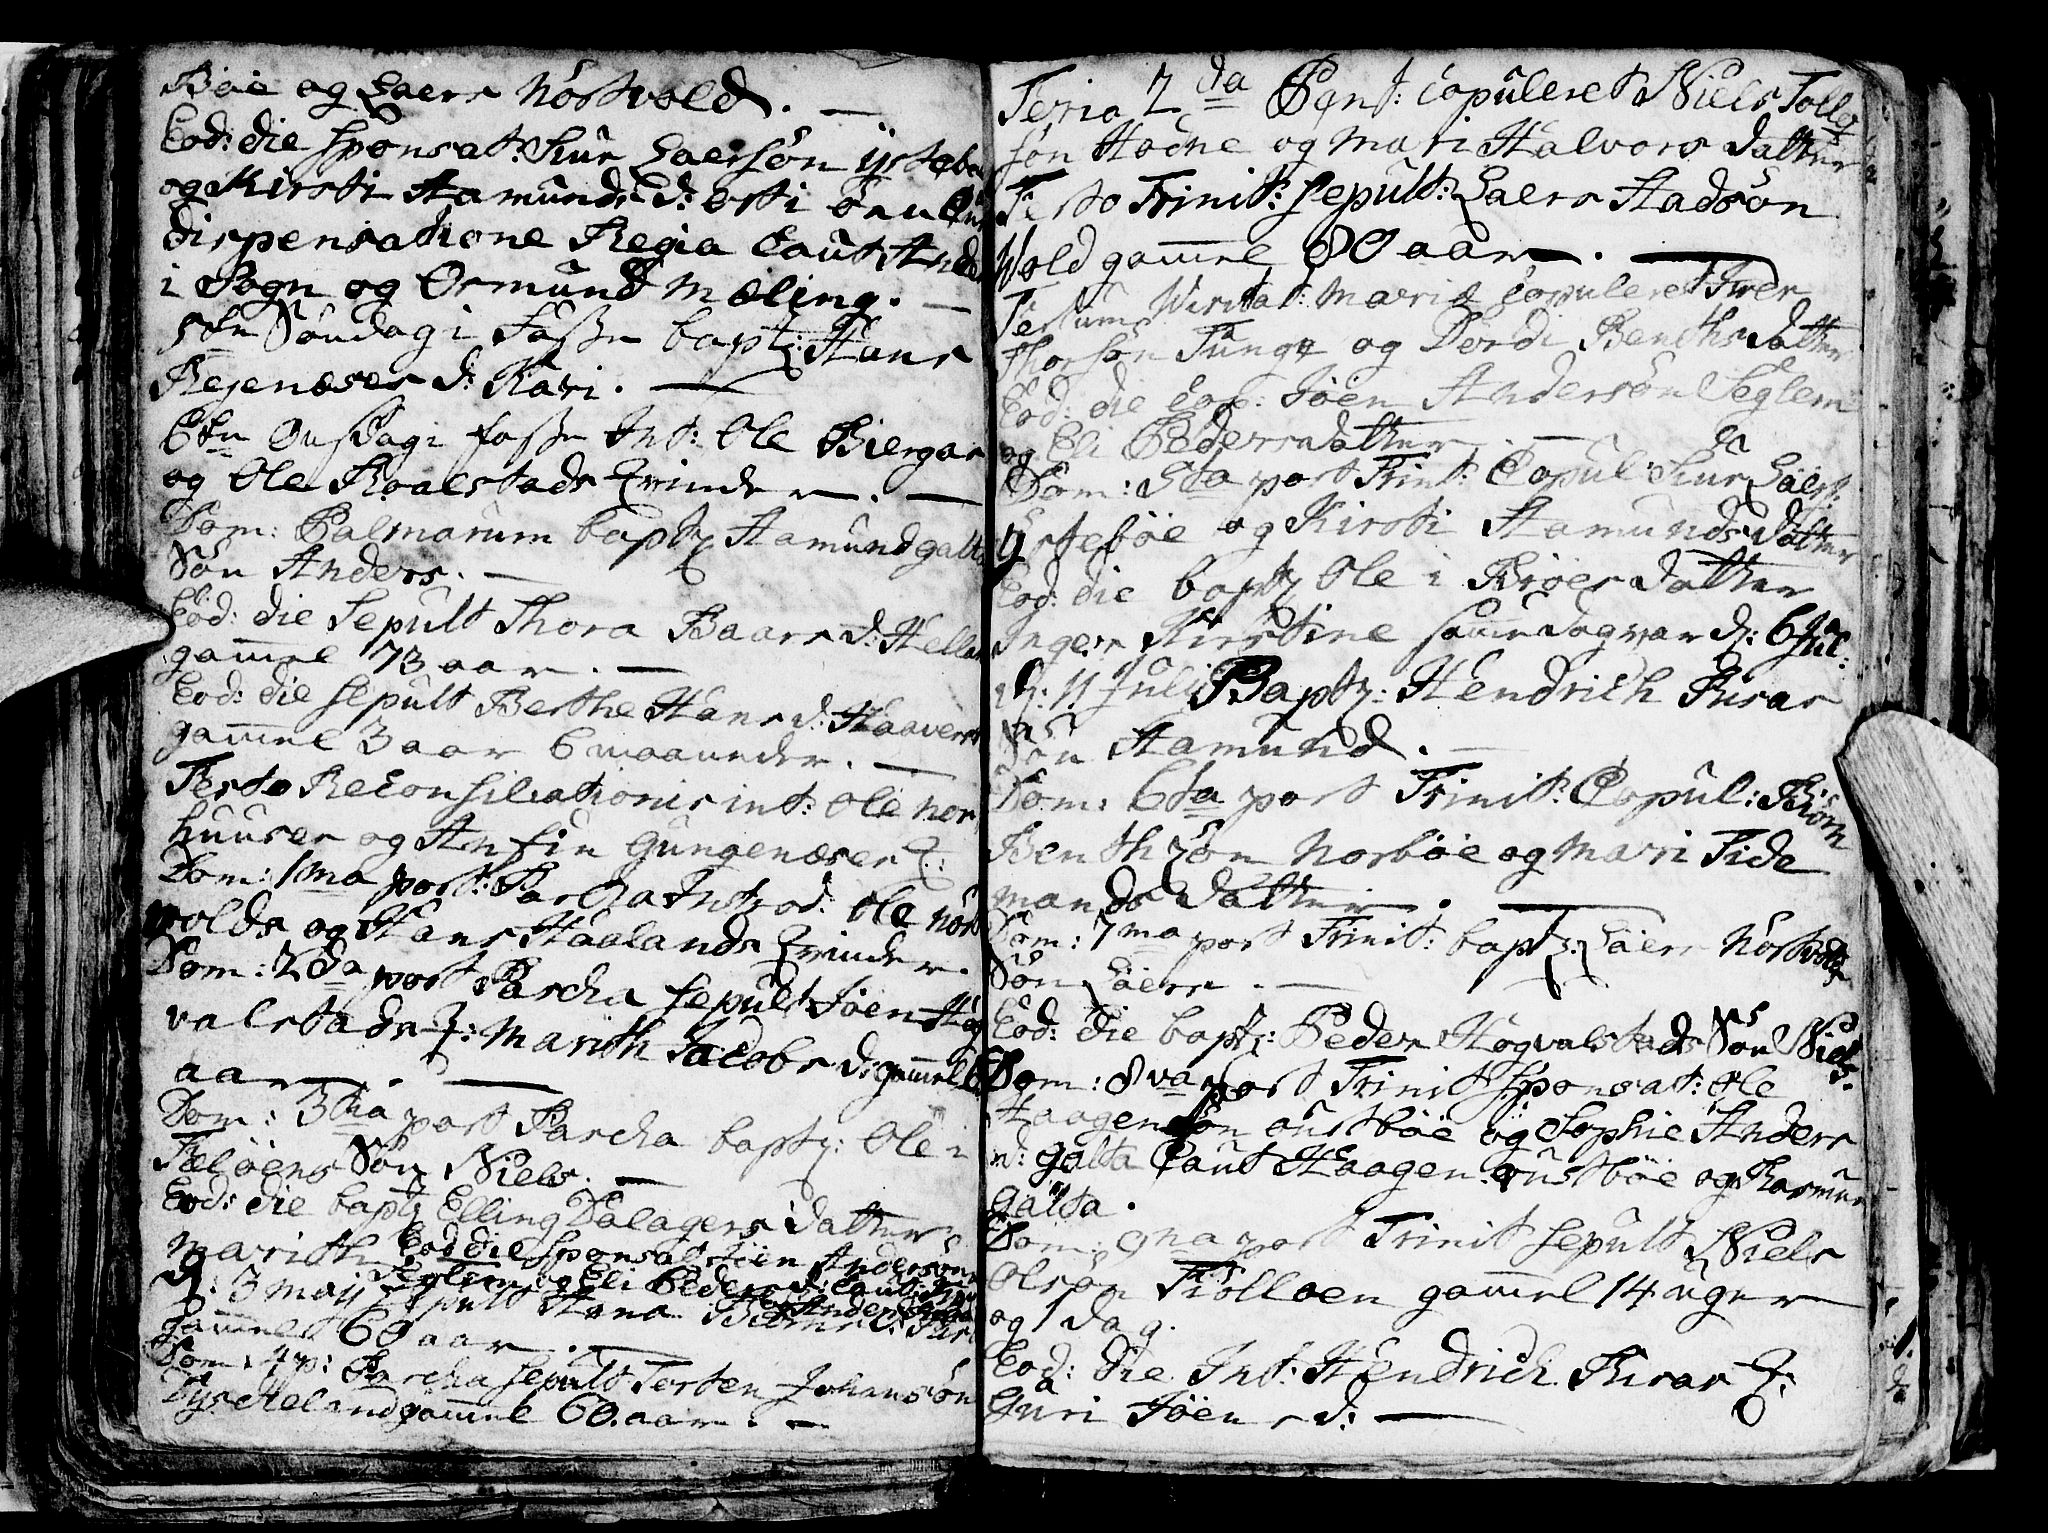 Bøe og Laers Nostvold. —
Eod: die Sponsat: Siur Laersøn ÿstebø
og Kirsti Aamunds d:
dispensatione Regia Caut: Ande
i Sogn og Ormund Mæling. —
5te Søndag i Faste bapt: Hans
Regenæses d: Kari. —
6te Onsdag i faste Int: Ole Biergar
og Ole Roalstads Qvinder. —
Dom: Palmarum bapt: Aamund galta
Søn Anders. —
Eod: die Sepult Thora Baars d: Hella
gaml 73 aar. —
Eod: die sepult Berthe Hans d: Haavers
gaml 3 aar 6 maaneder. —
Festo Reconsiliationis int: Ole Nor
huuses og Anfin Gungenæses Q:
Dom: 1ma post: Pascha Introd: Ole Nost
volds og Hans Haalands Qvinder.
Dom: 2da post Pascha sepult Joen Hog
valstads Q: Marith Jacobs d: gaml
aar. —
Dom: 3tia post Pascha bapt: Ole i
Fæløens Søn Niels. —
Eod: die bapt: Elling Dalagers datter
Marith. Eod die Sponsat Joen Andersøn
Seglem og Eli Peders d: Caut:
d: 3 Maij Sepult Anna
gaml 60 aar. —
Dom: 4 p: Pascha sepult Torsten Johansøn
Dysieland gaml 60 aar. —
Feria 2da Pent: Copuleret Niels Tolle
søn Hodne og Mari Halvors datter
Festo Trinit: Sepult: Laers Aadsøn
Wold gaml 80 aar. —
Festum Visitat: Mariæ Copuleret Iver
Thorsøn Tunge og Dordi Benths datter
Eod: die Cop: Joen Andersøn Seglem
og Eli Pedersdatter. —
Dom: 5ta post Trinit: Copul: Siur Laers:
ÿstebøe og Kirsti Aamunds datter
Eod: die bapt: Ole i Kroes datter
Inger Kirstine samme dag var d: 6 Jul:
d: 11 Julij Bapt: Hendrich Risas
Søn Aamund. —
Dom: 6ta post Trinit: Copul: Biørn
Benthsøn Norbøe og Mari Tide
mands datter. —
Dom: 7ma post Trinit: bapt: Laers Nostvolds
Søn Laers. —
Eod: die bapt: Peder Hogvalstads Søn Niels.
Dom: 8va post Trinit Sponsat: Ole
Haagensøn Austbøe og Sophie Anders
d: galta Caut Haagen Austbøe og Rasmus
Galta.
Dom: 9na post Trinit sepult Niels
Olsøn Fiølloen gaml 14 uger
og 1 dag.
Eod: die Int: Hendrich Risas Q:
Guri Joens d: —